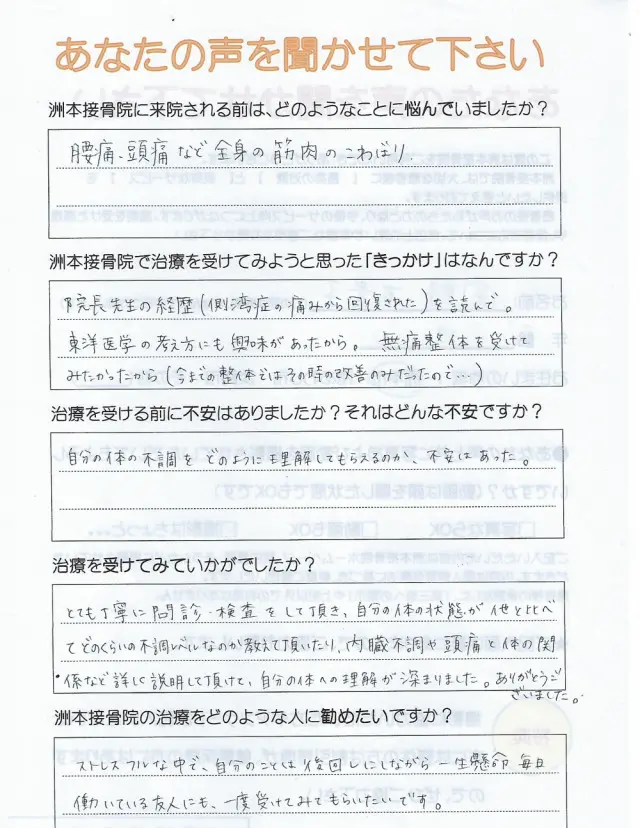 あなたの声を聞かせて下さい
洲本接骨院に来院される前は、どのようなことに悩んでいましたか？
腰痛、頭痛など全身の筋肉のこわばり.
洲本接骨院で治療を受けてみようと思った「きっかけ」はなんですか？
院長先生の経歴(側湾症の痛みから回復された)を読んで。
東洋医学の考え方にも興味があったから。 無痛整体を受けて
みたかったから(今までの整体ではその時の改善のみだったので…)
治療を受ける前に不安はありましたか？それはどんな不安ですか？
自分の体の不調をどのように理解してもらえるのか、不安はあった。
治療を受けてみていかがでしたか？
とても丁寧に問診・検査をして頂き、自分の体の状態が他と比べ
てどのくらいの不調レベルなのか教えて頂いたり、内臓不調や頭痛と体の関
係など詳しく説明して頂けて、自分の体への理解が深まりました。ありがとうご
ざいました。
洲本接骨院の治療をどのような人に勧めたいですか？
ストレスフルな中で、自分のことは後回しにしながら一生懸命毎日
働いている友人にも、一度受けてみてもらいたいです。